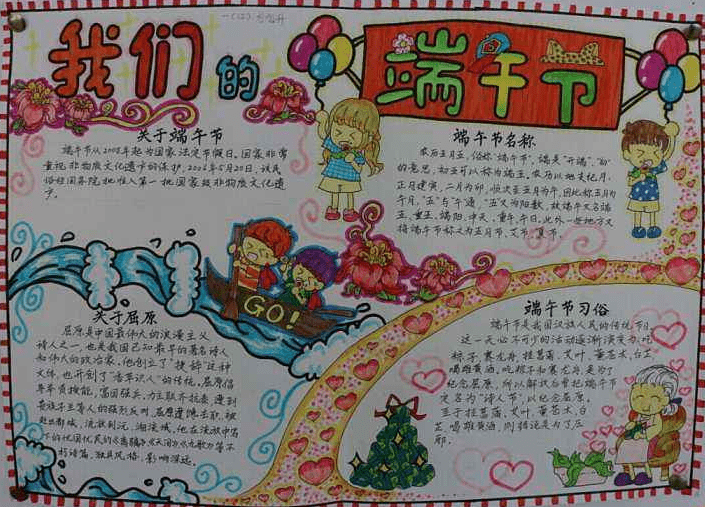 我们的
端午节
关于端午节
端午节从2008年起为国家法定节假日。国家非常
重视非物质文化遗产的保护,2006年5月20日,该民
俗经国务院批准入第一批国家级非物质文化遗
产。
端午节名称
农历五月五,俗称"端午节",端是"开端"、"初"
的意思。初五可以称为端五。农历以地支纪月,
正月建寅,二月为卯,恒次至五月为午,因此称五月为
午月,"五"与"午"通,"五"又为阳数,故端午又名端
五、重五、端阳、中天、重午、午日,此外一些地方又
将端午节称之为五月节、艾节、夏节。
GO!
关于屈原
屈原是中国最伟大的浪漫主义
诗人之一,也是我国已知最早的著名诗人
和伟大的政治家。他创立了"楚辞"这种
文体,也开创了"香草美人"的传统。屈原倡
导举贤授能,富国强兵,力主联齐抗秦,遭到
贵族子兰等人的强烈反对,屈原遭馋去职,被
赶出都城,流放到沅、湘流域。他在流放中写
下的忧国忧民的《离骚》《天问》《九歌》等不
朽诗篇,独具风格,影响深远。
端午节习俗
端午节是我国汉族人民的传统节日。
这一天必不可少的活动逐渐演变为:吃
粽子,赛龙舟,挂菖蒲、艾叶,薰苍术、白芷,
喝雄黄酒。吃粽子和赛龙舟,是为了
纪念屈原,所以解放后曾把端午节
定名为"诗人节",以纪念屈原。
至于挂菖蒲、艾叶,薰苍术、白
芷,喝雄黄酒,则据说是为了压
邪。